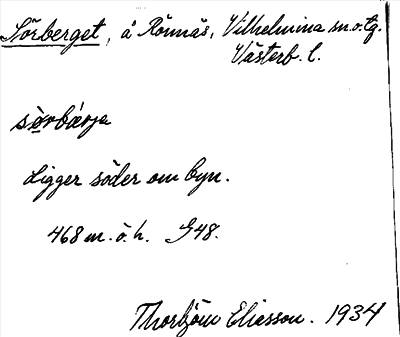 Sörberget, å Rönnäs, Vilhelmina sn.o.tg.
Västerb. l.
sørbærjə
Ligger söder om byn.
468 m. ö. h. G48.
Thorbjörn Eliasson. 1934